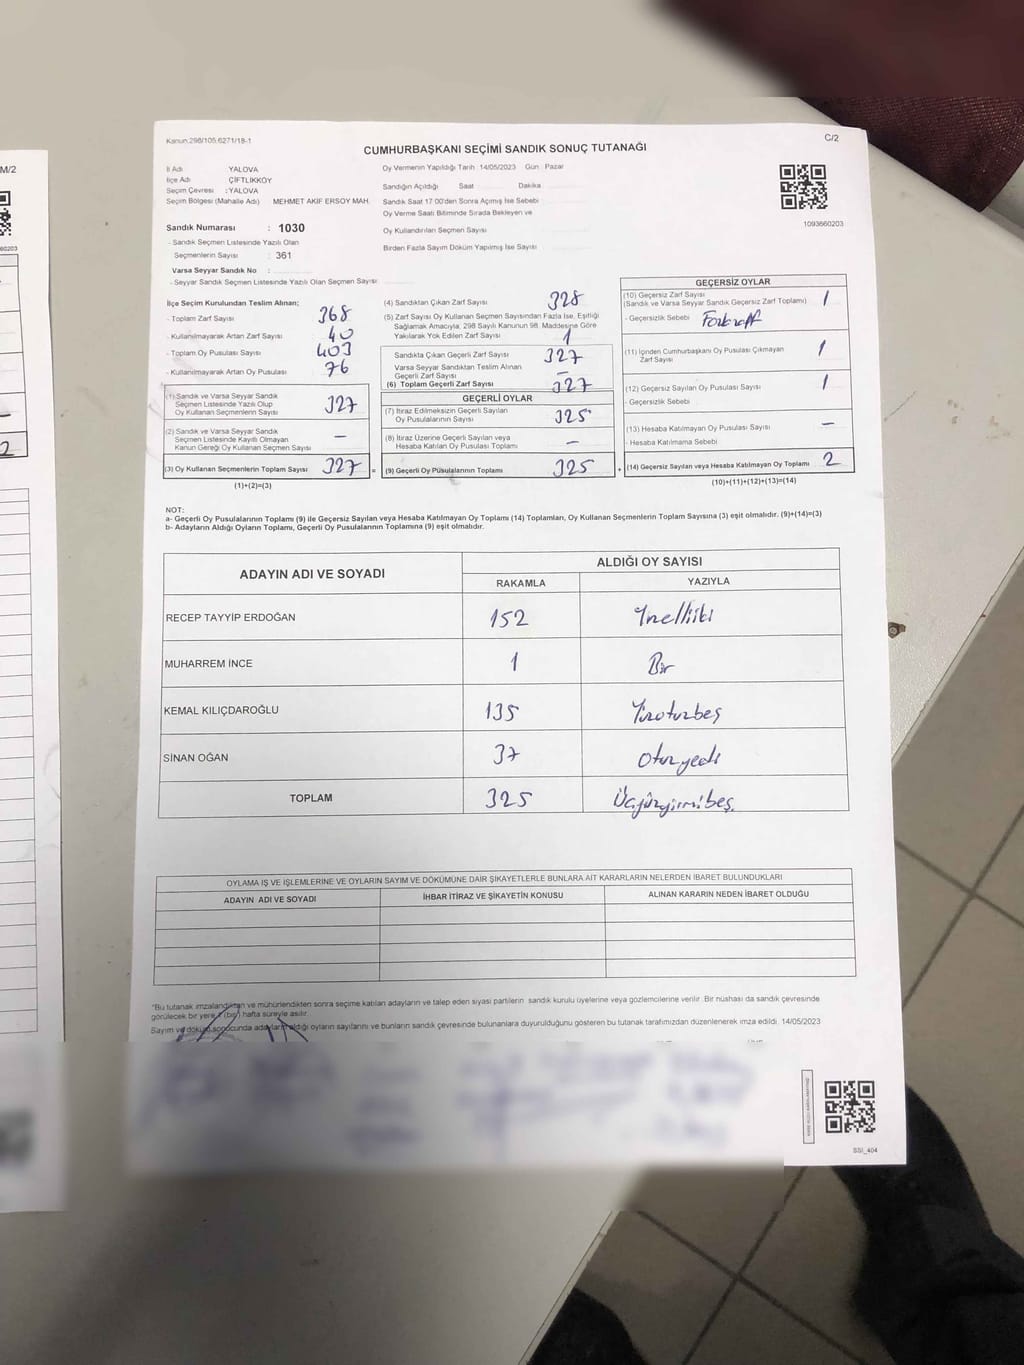 M/2
60203
2
Kanun:298/105,6271/18-1
C/2
CUMHURBAŞKANI SEÇİMİ SANDIK SONUÇ TUTANAĞI
İl Adı YALOVA
İlçe Adı ÇİFTLİKKÖY
Seçim Çevresi :YALOVA
Seçim Bölgesi (Mahalle Adı) MEHMET AKİF ERSOY MAH.
Sandık Numarası : 1030
- Sandık Seçmen Listesinde Yazılı Olan
Seçmenlerin Sayısı : 361
Varsa Seyyar Sandık No :
- Seyyar Sandık Seçmen Listesinde Yazılı Olan Seçmen Sayısı
Oy Vermenin Yapıldığı Tarih :14/05/2023 Gün : Pazar
Sandığın Açıldığı Saat Dakika
Sandık Saat 17:00'den Sonra Açılmış İse Sebebi
Oy Verme Saati Bitiminde Sırada Bekleyen ve
Oy Kullandırılan Seçmen Sayısı
Birden Fazla Sayım Döküm Yapılmış İse Sayısı
1093660203
İlçe Seçim Kurulundan Teslim Alınan;
- Toplam Zarf Sayısı 368
- Kullanılmayarak Artan Zarf Sayısı 40
- Toplam Oy Pusulası Sayısı 403
- Kullanılmayarak Artan Oy Pusulası 76
(1) Sandık ve Varsa Seyyar Sandık
Seçmen Listesinde Yazılı Olup
Oy Kullanan Seçmenlerin Sayısı 327
(2) Sandık ve Varsa Seyyar Sandık
Seçmen Listesinde Kayıtlı Olmayan
Kanun Gereği Oy Kullanan Seçmen Sayısı –
(3) Oy Kullanan Seçmenlerin Toplam Sayısı 327 =
(1)+(2)=(3)
(4) Sandıktan Çıkan Zarf Sayısı 328
(5) Zarf Sayısı Oy Kullanan Seçmen Sayısından Fazla İse, Eşitliği
Sağlamak Amacıyla, 298 Sayılı Kanunun 98. Maddesine Göre
Yakılarak Yok Edilen Zarf Sayısı 1
Sandıkta Çıkan Geçerli Zarf Sayısı 327
Varsa Seyyar Sandıktan Teslim Alınan
Geçerli Zarf Sayısı –
(6) Toplam Geçerli Zarf Sayısı 327
GEÇERLİ OYLAR
(7) İtiraz Edilmeksizin Geçerli Sayılan
Oy Pusulalarının Sayısı 325
(8) İtiraz Üzerine Geçerli Sayılan veya
Hesaba Katılan Oy Pusulası Toplamı –
(9) Geçerli Oy Pusulalarının Toplamı 325 +
GEÇERSİZ OYLAR
(10) Geçersiz Zarf Sayısı
(Sandık ve Varsa Seyyar Sandık Geçersiz Zarf Toplamı) 1
- Geçersizlik Sebebi
(11) İçinden Cumhurbaşkanı Oy Pusulası Çıkmayan
Zarf Sayısı 1
(12) Geçersiz Sayılan Oy Pusulası Sayısı 1
- Geçersizlik Sebebi
(13) Hesaba Katılmayan Oy Pusulası Sayısı –
- Hesaba Katılmama Sebebi
(14) Geçersiz Sayılan veya Hesaba Katılmayan Oy Toplamı 2
(10)+(11)+(12)+(13)=(14)
NOT:
a- Geçerli Oy Pusulalarının Toplamı (9) ile Geçersiz Sayılan veya Hesaba Katılmayan Oy Toplamı (14) Toplamları, Oy Kullanan Seçmenlerin Toplam Sayısına (3) eşit olmalıdır. (9)+(14)=(3)
b- Adayların Aldığı Oyların Toplamı, Geçerli Oy Pusulalarının Toplamına (9) eşit olmalıdır.
ADAYIN ADI VE SOYADI ALDIĞI OY SAYISI
RAKAMLA YAZIYLA
RECEP TAYYİP ERDOĞAN 152 Yüzelliiki
MUHARREM İNCE 1 Bir
KEMAL KILIÇDAROĞLU 135 Yüzotuzbeş
SİNAN OĞAN 37 Otuzyedi
TOPLAM 325 Üçyüzyirmibeş
OYLAMA İŞ VE İŞLEMLERİNE VE OYLARIN SAYIM VE DÖKÜMÜNE DAİR ŞİKAYETLERLE BUNLARA AİT KARARLARIN NELERDEN İBARET BULUNDUKLARI
ADAYIN ADI VE SOYADI İHBAR İTİRAZ VE ŞİKAYETİN KONUSU ALINAN KARARIN NEDEN İBARET OLDUĞU
*Bu tutanak imzalandıktan ve mühürlendikten sonra seçime katılan adayların ve talep eden siyasi partilerin sandık kurulu üyelerine veya gözlemcilerine verilir. Bir nüshası da sandık çevresinde
görülecek bir yere 1 (bir) hafta süreyle asılır.
Sayım ve döküm sonucunda adayların aldığı oyların sayılarını ve bunların sandık çevresinde bulunanlara duyurulduğunu gösteren bu tutanak tarafımızdan düzenlenerek imza edildi. 14/05/2023
SSI_404